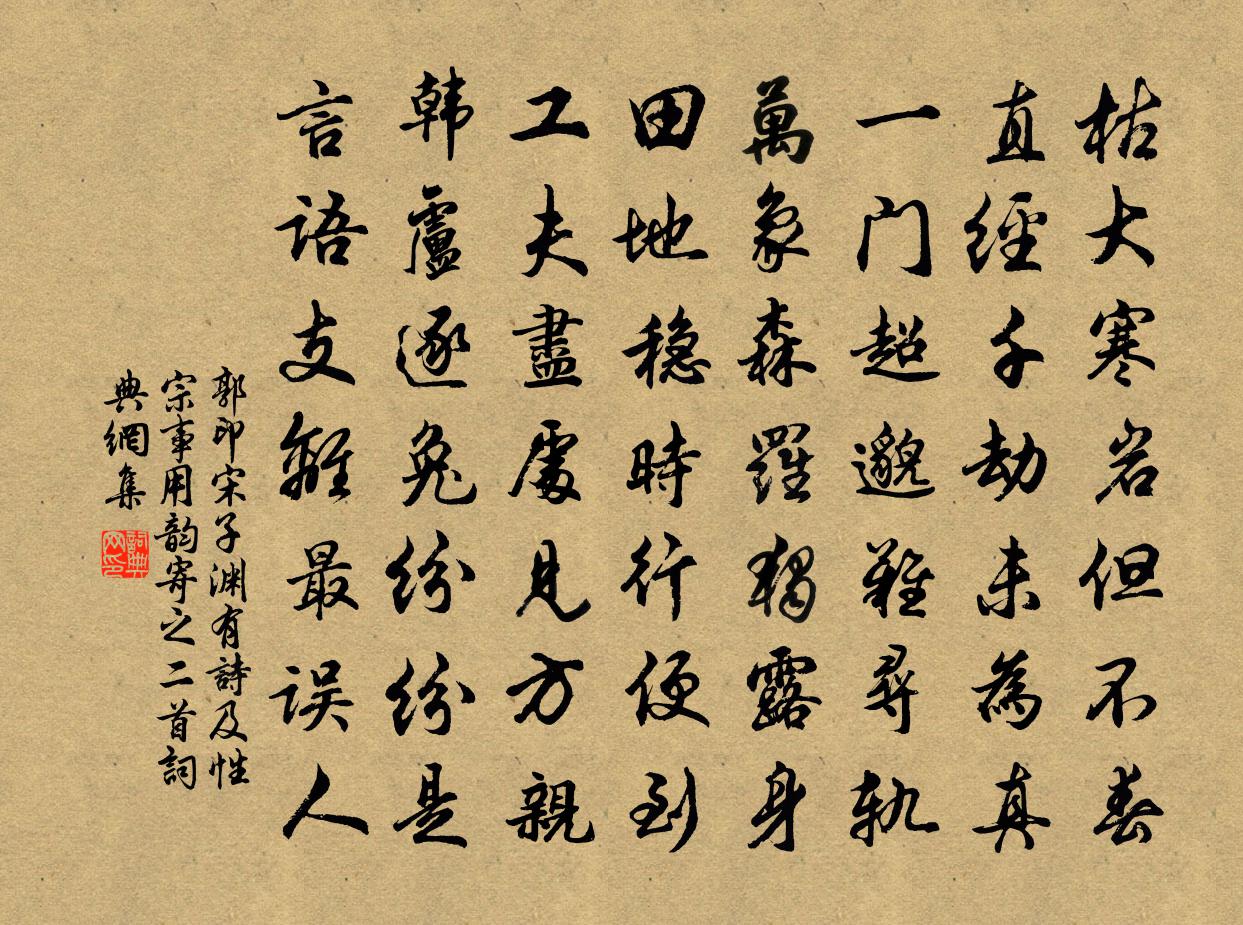 枯大寒岩但不春
直經千劫未為真
一门超邈難尋軌
萬象森羅獨露身
田地稳時行便到
工夫盡處見方親
韓盧逐兔紛紛是
言語支離最误人
郭印宋子渊有詩及性
宗事用韵寄之二首詞
典網集
詞典网印